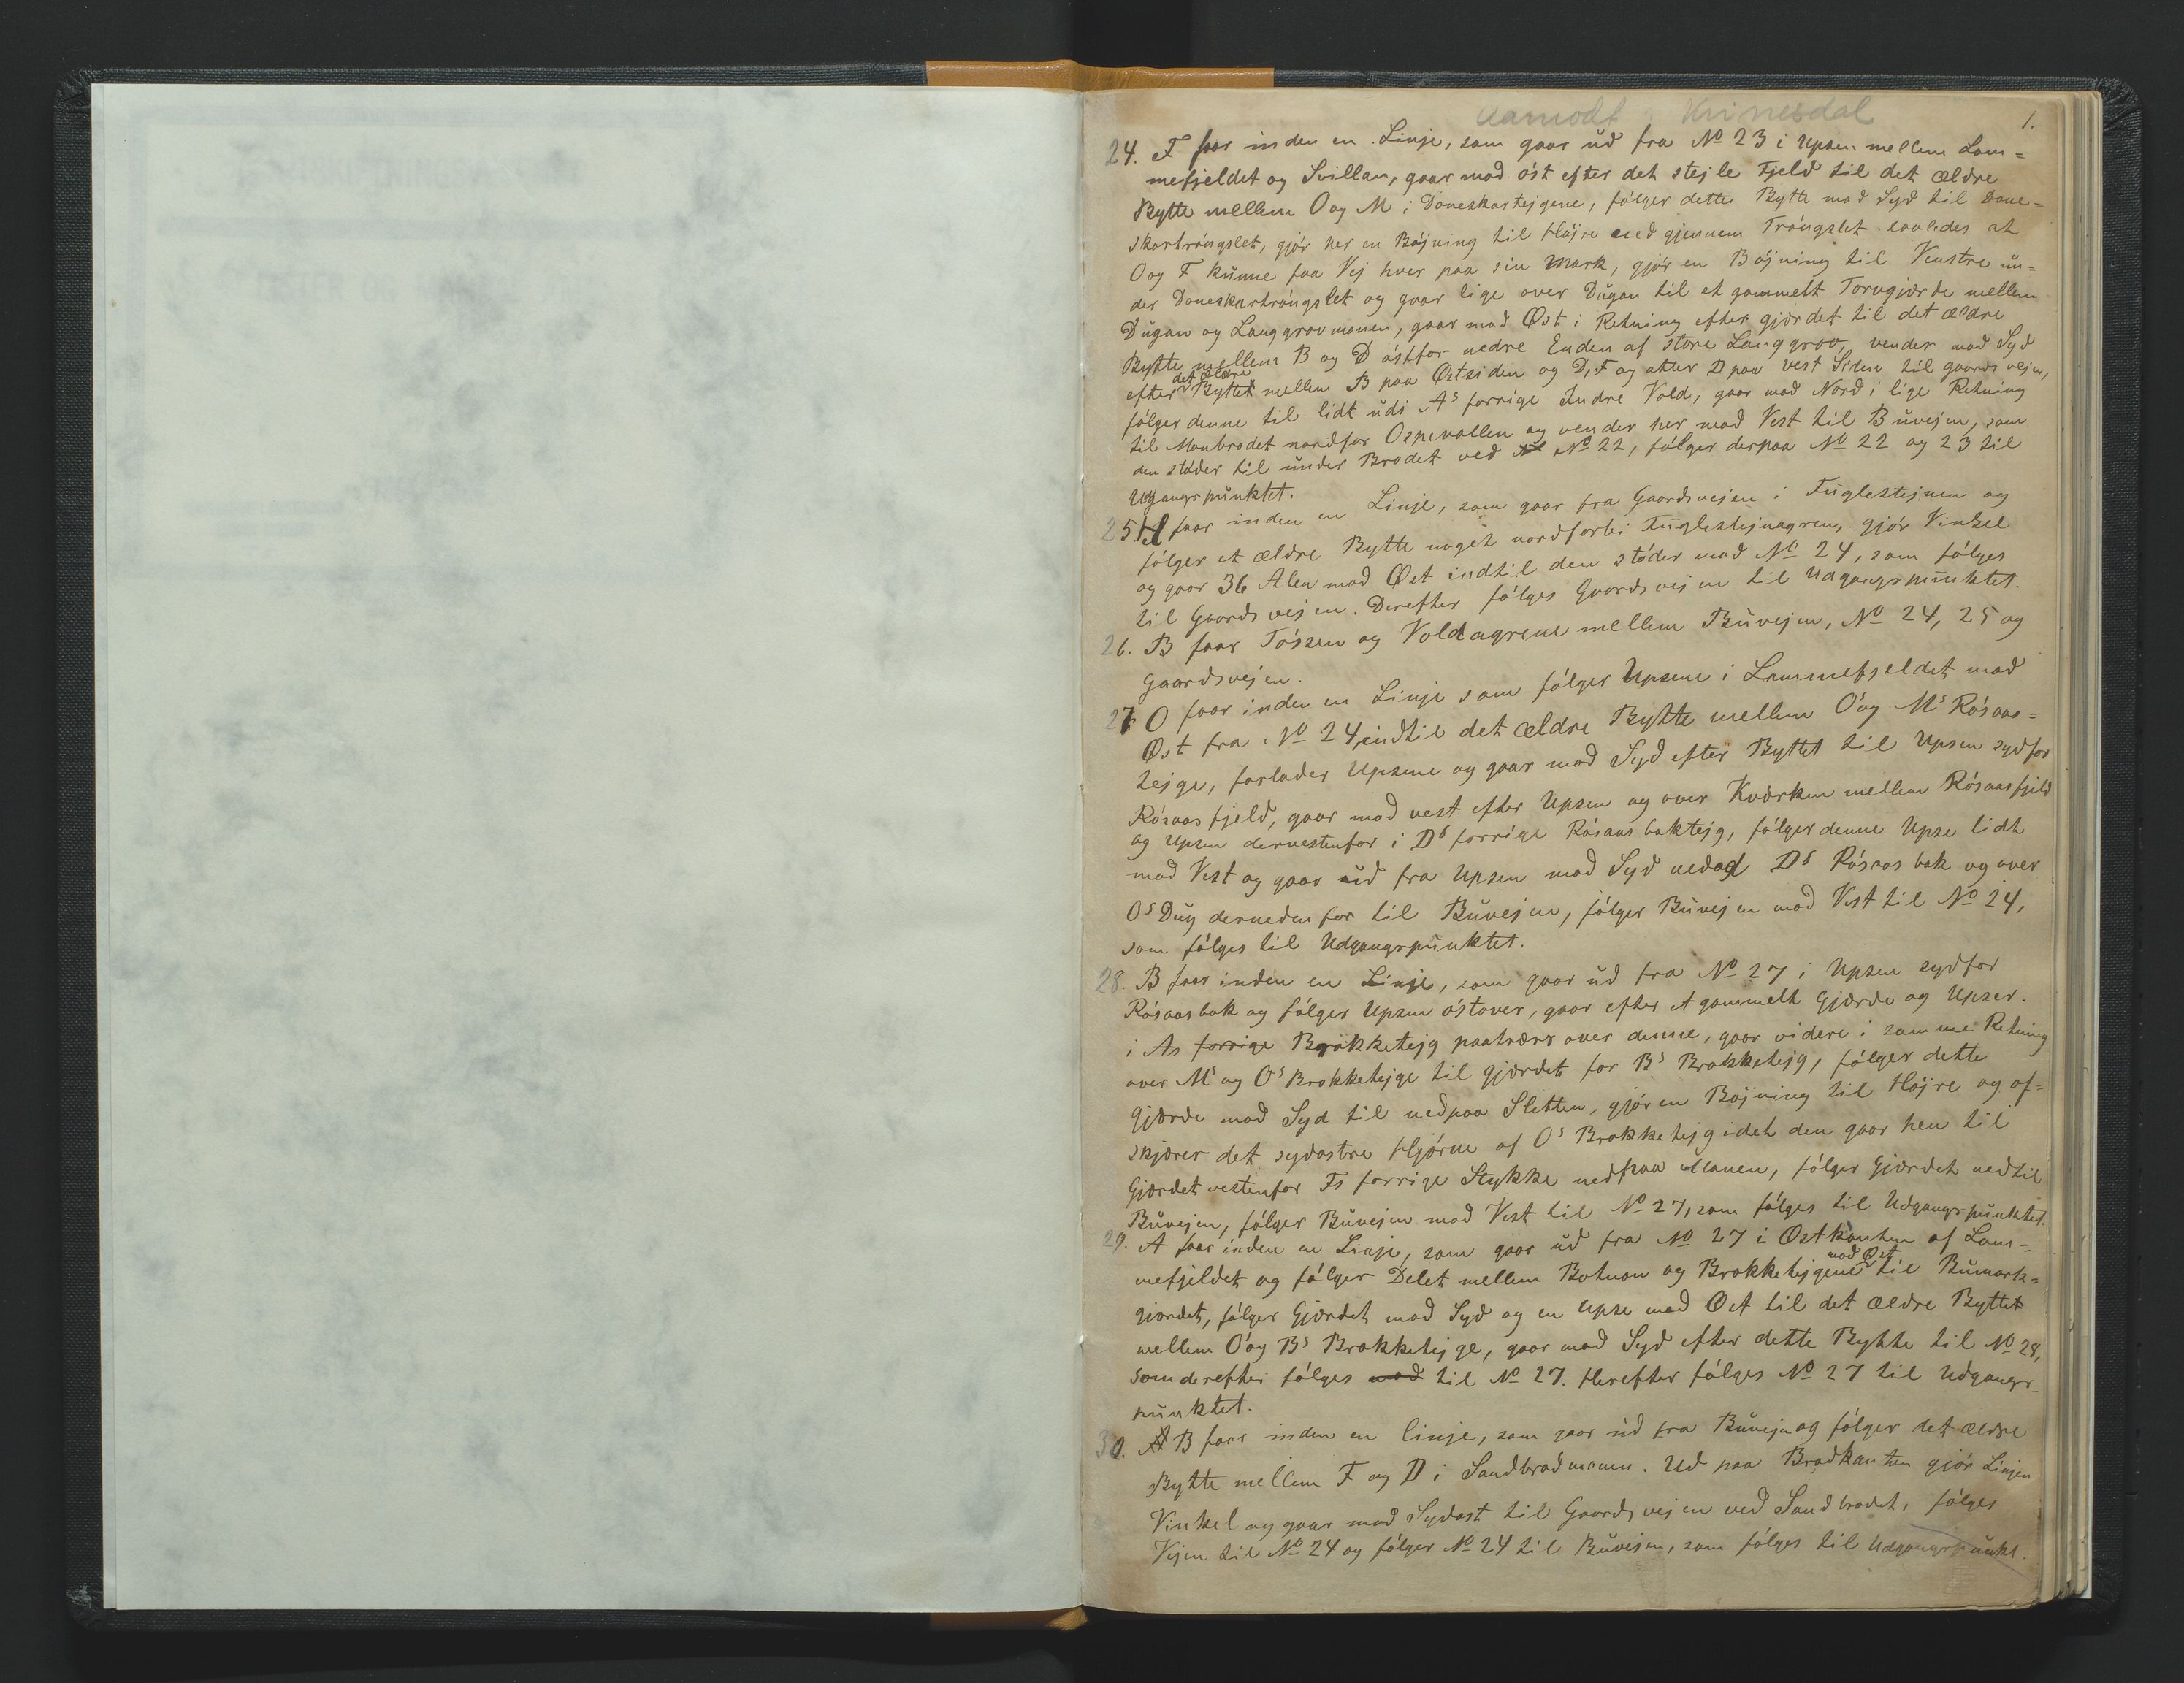 Aamodt Kvinesdal
1.
24. F faar inden en Linje, som gaar ud fra No 23 i Upsen mellem Lom=
mefjeldet og Svillan, gaar mod öst efter det stejle Fjeld til det ældre
Bytte mellem O og M i Doneskartejgene, fölger dette Bytte mod Syd til Done=
skartrángslet, gjör her en Böjning til Höjre ned gjennem Trángslet saaledes at
O og F kunne faa Vej hver paa sin Mark, gjör en Böjning til Venstre un=
der Doneskartrángslet og gaar lige over Dugan til et gammelt Torvgjærde mellem
Dugan og Langgravmonen, gaar mod Öst i Retning efter gjærdet til det ældre
Bytte mellem B og D östfor nedre Enden af store Langgrav, vender mod Syd
efter det ældre Byttet mellem B paa Østsiden og D, F og atter D paa vest Siden til gaardsvejen,
fölger denne til lidt udi As forrige Indre Vold, gaar mod Nord i lige Retning
til Monbrodet nordfor Ospevollen og vender her mod Vest til Buvejen, som
den stöder til under Brodet ved No 22, fölger derpaa No 22 og 23 til
Udgangspunktet.
25. H faar inden en Linje, som gaar fra Gaardsvejen i Fuglestejnen og
fölger et ældre Bytte noget nordforbi Fuglestejnagren, gjör Vinkel
og gaar 36 Alen mod Øst indtil den stöder mod No 24, som fölges
til Gaardsvejen. Derefter fölges Gaardsvejen til Udgangspunktet.
26. B faar Tössen og Voldagrene mellem Buvejen, No 24, 25 og
Gaardsvejen.
27. O faar inden en Linje som fölger Upsene i Lommefjeldet mod
Øst fra No 24, indtil det ældre Bytte mellem Os og Ms Rösaas=
tejge, forlader Upsene og gaar mod Syd efter Byttet til Upsen sydfor
Rösaasfjeld, gaar mod vest efter Upsen og over Kværken mellem Rösaasfjeld
og Upsen dervestenfor i Ds forrige Rösaasbaktejg, fölger denne Upse lidt
mod Vest og gaar ud fra Upsen mod Syd nedad Ds Rösaasbak og over
Os Dug dernedenfor til Buvejen, fölger Buvejen mod Vest til No 24,
som fölges til Udgangspunktet.
28. B faar inden en Linje, som gaar ud fra No 27 i Upsen sydfor
Rösaasbak og fölger Upsen östover, gaar efter et gammelt Gjærde og Upser.
i As forrige Brokketejg paatværs over denne, gaar videre i samme Retning
over Ms og Os Brokketejge til gjærdet for Bs Brokketejg, fölger dette
Gjærde mod Syd til nedpaa Sletten, gjör en Böjning til Höjre og af=
skjærer det sydöstre Hjörne af Os Brokketejg idet den gaar hen til
Gjærdet vestenfor Fs forrige Stykke nedpaa Monen, fölger Gjærdet nedtil
Buvejen, fölger Buvejen mod Vest til No 27, som fölges til Udgangspunktet.
29. A faar inden en Linje, som gaar ud fra No 27 i Østkanten af Lom=
mefjeldet og fölger Delet mellem Botnon og Brokketejgene mod Øst til Bumark=
gjærdet, fölger Gjærdet mod Syd og en Upse mod Øst til det ældre Byttet
mellem Os og Bs Brokketejge, gaar mod Syd efter dette Bytte til No 28,
som derefter fölges mod til No 27. Herefter fölges No 27 til Udgangs=
punktet.
30. A B faar inden en linje, som gaar ud fra Buvejen og fölger det ældre
Bytte mellem F og D i Sandbrodmonen. Ud paa Brodkanten gjör Linjen
Vinkel og gaar mod Sydöst til Gaardsvejen ved Sandbrodet, fölger
Vejen til No 24 og fölger No 24 til Buvejen, som fölges til Udgangspunkt.